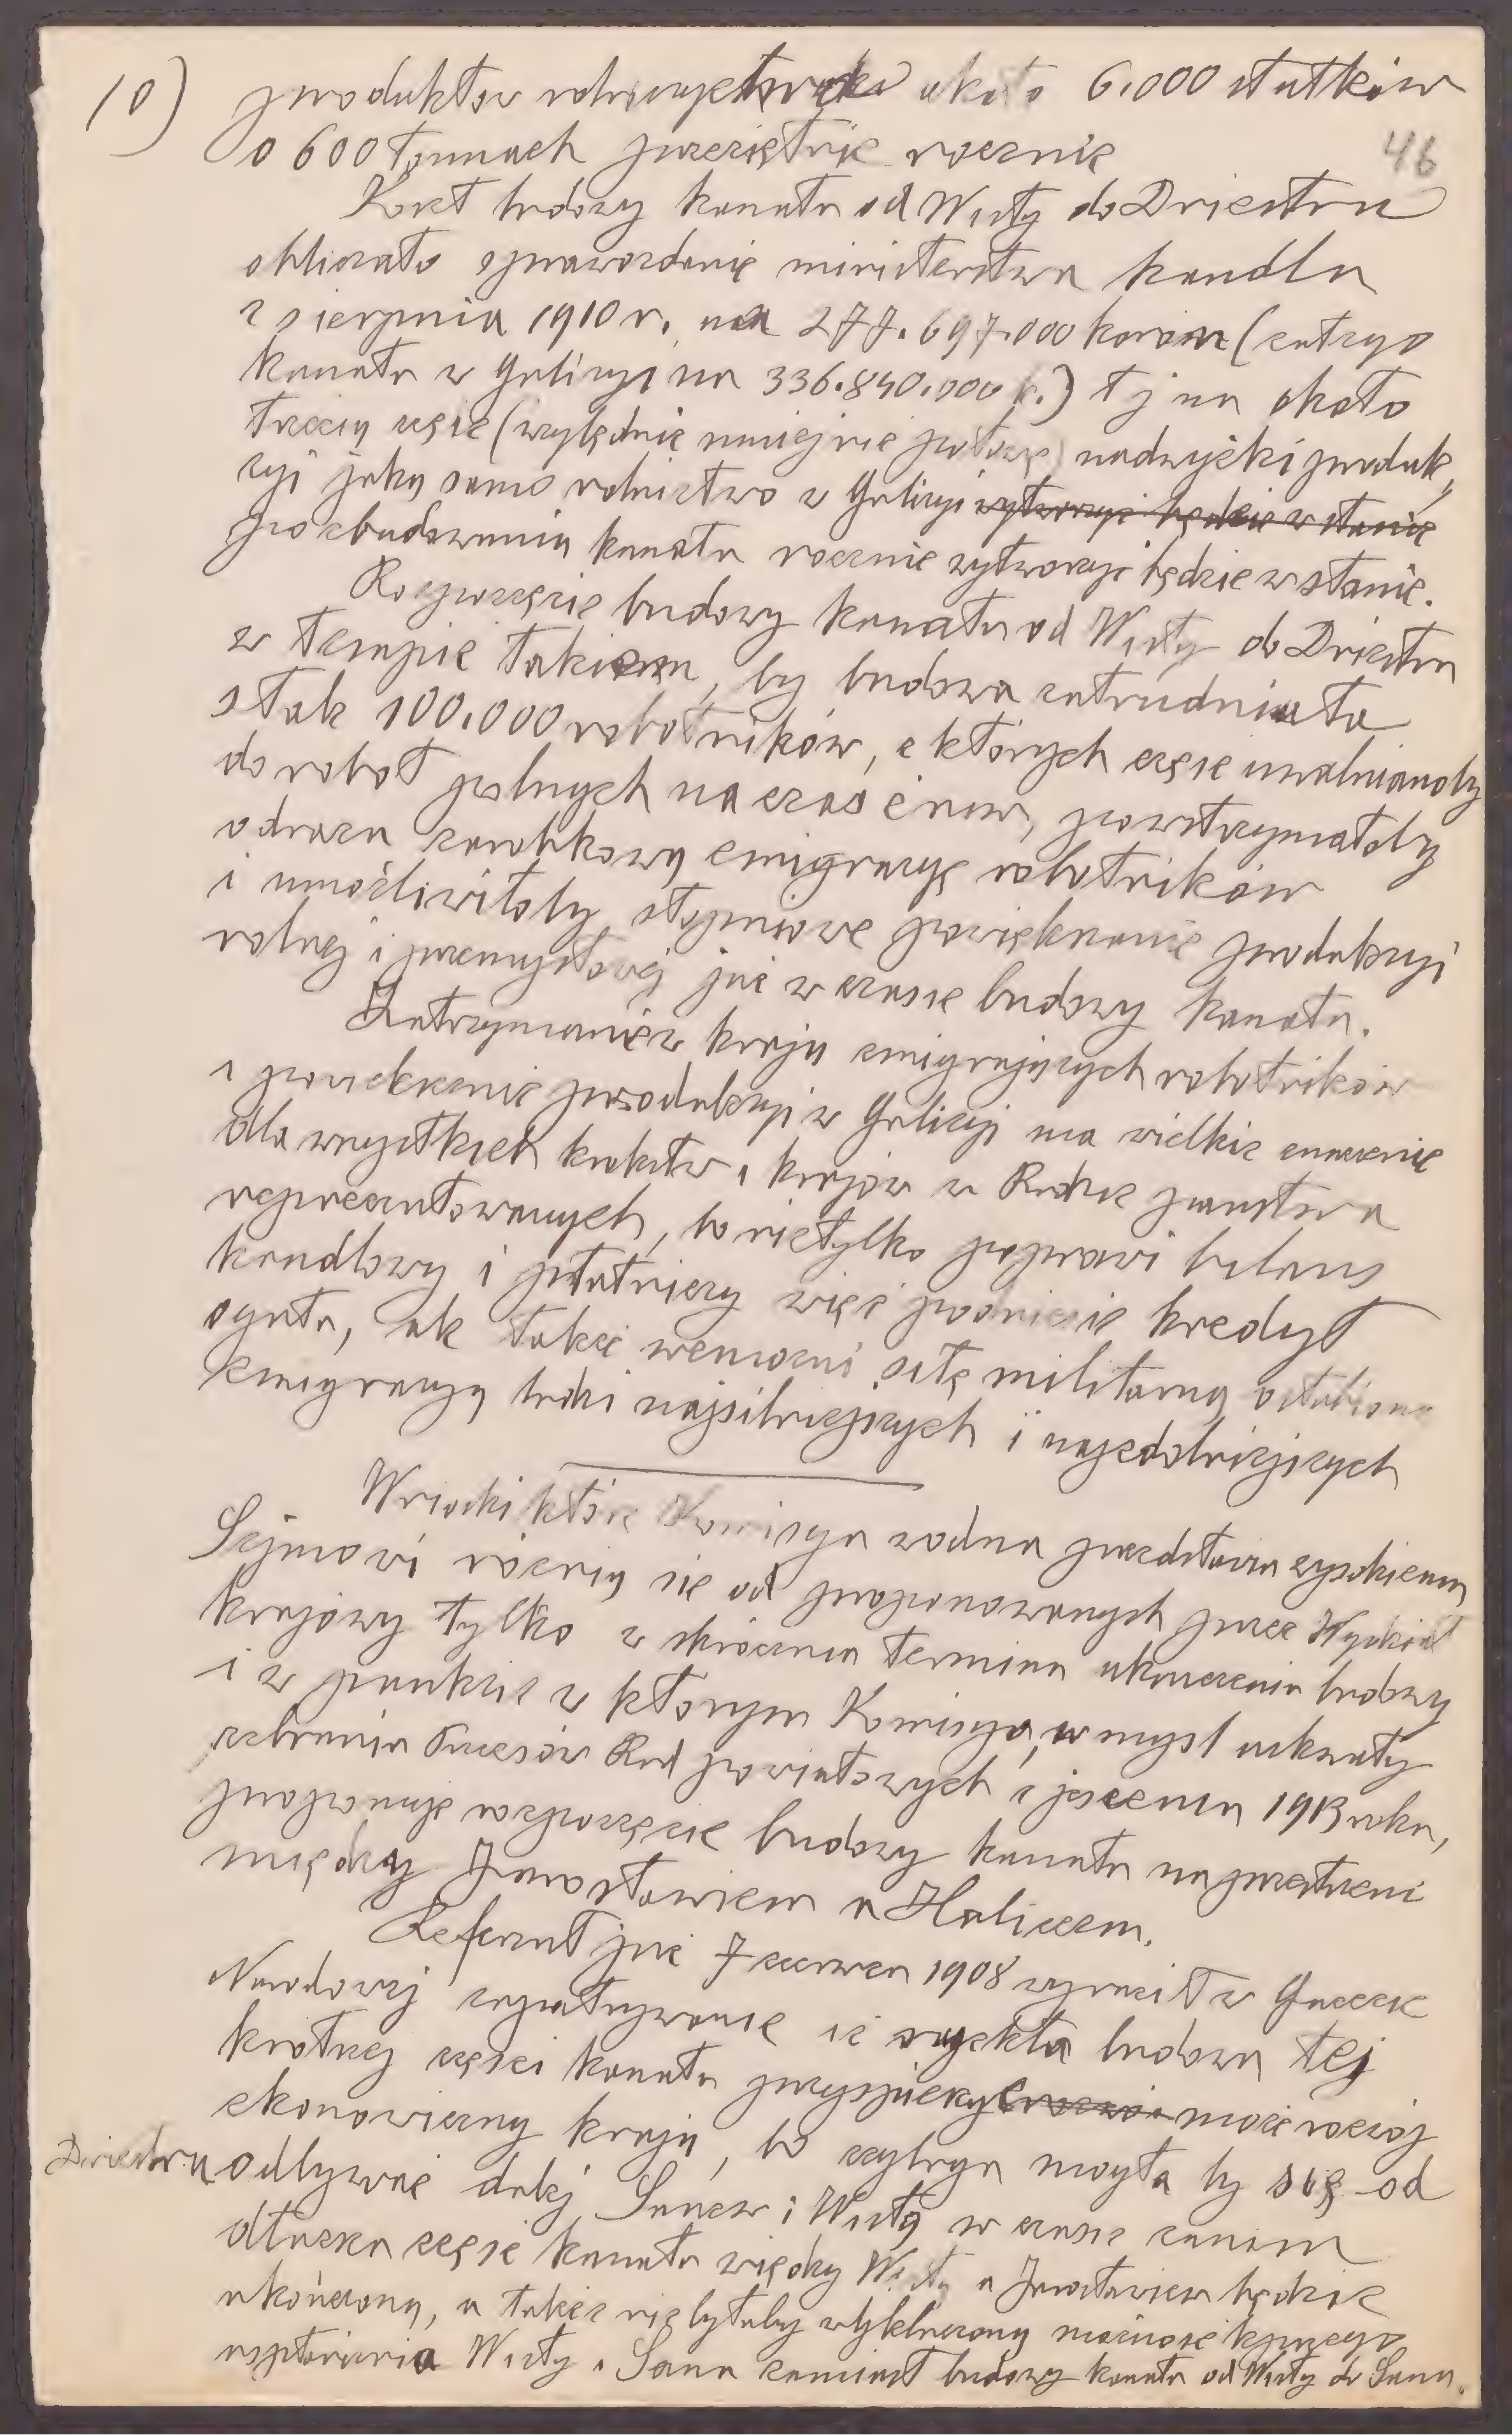 10) produktów rolniczych około 6.000 statków
46
o 600 tonnach przeciętnie rocznie
Koszt budowy kanału od Wisły do Dniestru
obliczało sprawozdanie ministerstwa handlu
z sierpnia 1910 r. na 277.697.000 koron (całego
kanału w Galicyi na 336.840.000 k.) t j na około
trzecią część (względnie mniej niż połowę) nadwyżki produk„
cyi jaką samo rolnictwo w Galicyi wytworzyć będzie w stanie
po zbudowaniu kanału rocznie wytworzyć będzie w stanie.
Rozpoczęcie budowy kanału od Wisły do Dniestru
w tempie takiem, by budowa zatrudniała
stak 100.000 robotników, z których część uwalnianoby
do robot polnych na czas żniw, powstrzymałoby
odrazu zarobkową emigracyę robotników
i umożliwiłoby stopniowe powiększanie produkcyi
rolnej i przemysłowej już w czasie budowy kanału.
Zatrzymanie w kraju emigrujących robotników
i powiększenie produkcyi w Galicyi ma wielkie znaczenie
dla wszystkich królestw i krajów w Radzie państwa
reprezentowanych, bo nietylko poprawi bilans
handlowy i płatniczy więc podniesie kredyt
ogółu, ale także wzmocni siłę militarną osłabioną
emigracyą ludzi najsilniejszych i najzdolniejszych
Wnioski które Komisya wodna przedstawia wysokiemu
Sejmowi różnią się od proponowanych przez Wydział
krajowy tylko w skróceniu terminu ukończenia budowy
i w punkcie w którym Komisya, w myśl uchwały
zebrania Prezesów Rad powiatowych z jesienią 1913 roku,
proponuje rozpoczęcie budowy kanału na przestrzeni
między Jarosławiem a Haliczem.
Referent już 7 czerwca 1908 wyraził w Gazecie
Narodowej zapatrywanie iż rychła budowa tej
krótszej części kanału przyspieszyć może rozwój
ekonomiczny kraju, bo żegluga mogła by się od
Dniestru odbywać dalej Sanem i Wisłą w czasie zanim
dłuższa część kanału między Wisłą a Jarosławiem będzie
ukończoną, a także nie byłaby wykluczoną możność lepszego
uspławnienia Wisły i Sanu zamiast budowy kanału od Wisły do Sanu.